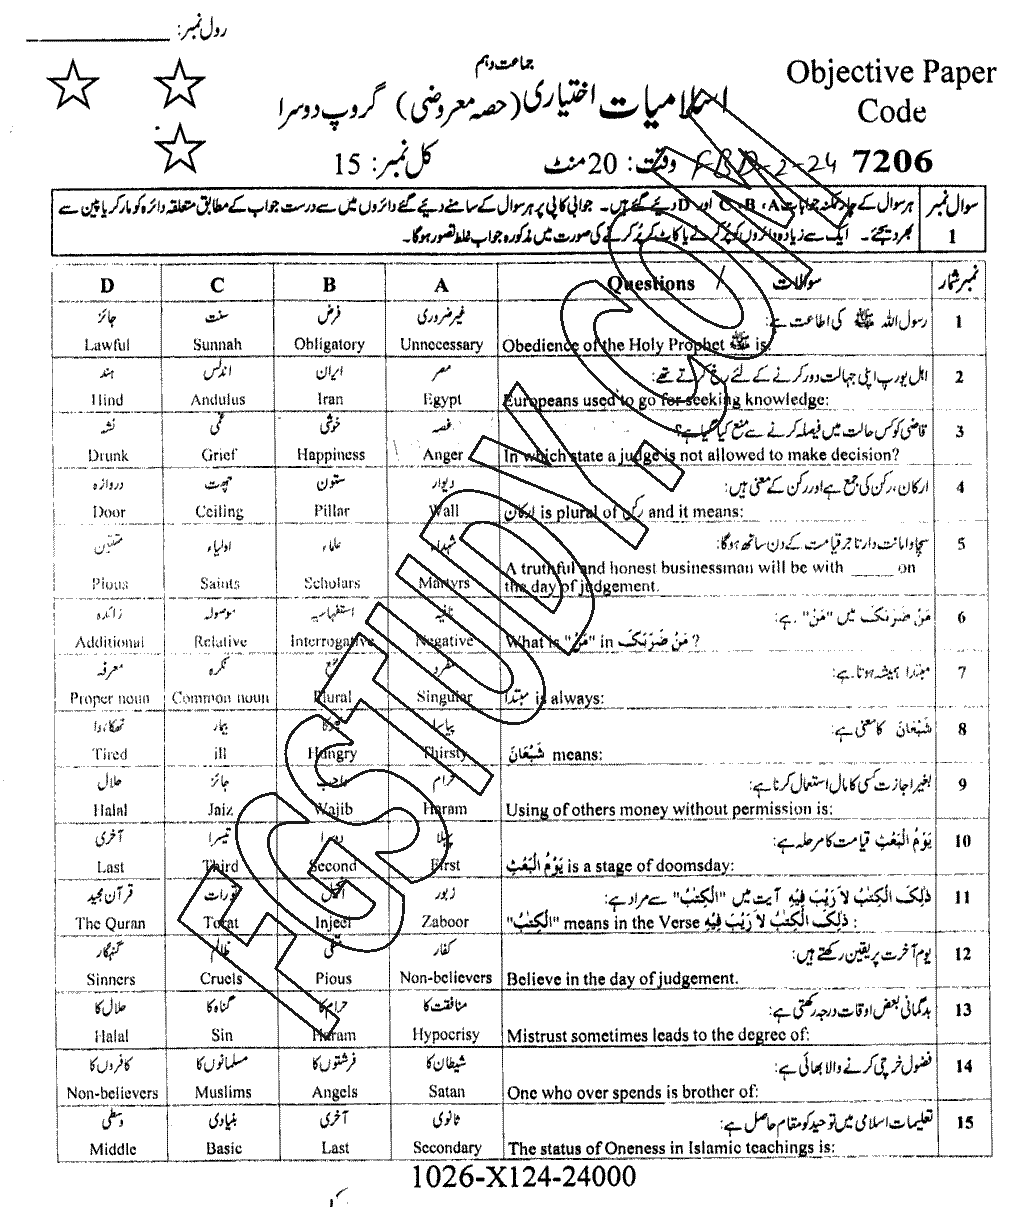 رول نمبر: ____________
جماعت دہم
Objective Paper
اسلامیات اختیاری (حصہ معروضی) گروپ دوسرا
Code
7206
FBD-2-24
وقت: 20 منٹ
کل نمبر: 15
سوال نمبر 1
ہر سوال کے چار ممکنہ جوابات A، B، C اور D دیئے گئے ہیں۔ جوابی کاپی پر ہر سوال کے سامنے دیئے گئے دائروں میں سے درست جواب کے مطابق متعلقہ دائرہ کو مارکر یا پین سے
بھر دیجئے۔ ایک سے زیادہ دائروں کو پُر کرنے یا کاٹ کر پُر کرنے کی صورت میں مذکورہ جواب غلط تصور ہوگا۔
نمبر شمار سوالات / Questions A B C D
1 رسول اللہ ﷺ کی اطاعت ہے: غیر ضروری فرض سنت جائز
Obedience of the Holy Prophet ﷺ is: Unnecessary Obligatory Sunnah Lawful
2 اہل یورپ اپنی جہالت دور کرنے کے لئے رخ کرتے تھے: مصر ایران اندلس ہند
Europeans used to go for seeking knowledge: Egypt Iran Andulus Hind
3 قاضی کو کس حالت میں فیصلہ کرنے سے منع کیا گیا ہے؟ غصہ خوشی غمی نشہ
In which state a judge is not allowed to make decision? Anger Happiness Grief Drunk
4 ارکان، رکن کی جمع ہے اور رکن کے معنی ہیں: دیوار ستون چھت دروازہ
ارکان is plural of رکن and it means: Wall Pillar Ceiling Door
5 سچا و امانت دار تاجر قیامت کے دن ساتھ ہوگا: شہداء علماء اولیاء متقین
A truthful and honest businessman will be with _____ on
the day of judgement. Martyrs Scholars Saints Pious
6 مَنْ ضَرَبَکَ میں "مَنْ" ہے: نافیہ استفہامیہ موصولہ زائدہ
What is "مَنْ" in مَنْ ضَرَبَکَ ? Negative Interrogative Relative Additional
7 مبتدا ہمیشہ ہوتا ہے: مفرد جمع نکرہ معرفہ
مبتدا is always: Singular Plural Common noun Proper noun
8 شَبْعَانَ کا معنی ہے: پیاسا بھوکا بیمار تھکا ہوا
شَبْعَانَ means: Thirsty Hungry ill Tired
9 بغیر اجازت کسی کا مال استعمال کرنا ہے: حرام واجب جائز حلال
Using of others money without permission is: Haram Wajib Jaiz Halal
10 یَوْمُ الْبَعْثِ قیامت کا مرحلہ ہے: پہلا دوسرا تیسرا آخری
یَوْمُ الْبَعْثِ is a stage of doomsday: First Second Third Last
11 ذٰلِکَ الْکِتٰبُ لَا رَیْبَ فِیْهِ آیت میں "الْکِتٰبُ" سے مراد ہے: زبور انجیل تورات قرآن مجید
"الْکِتٰبُ" means in the Verse ذٰلِکَ الْکِتٰبُ لَا رَیْبَ فِیْهِ : Zaboor Injeel Torat The Quran
12 یوم آخرت پر یقین رکھتے ہیں: کفار متقی ظالم گنہگار
Believe in the day of judgement. Non-believers Pious Cruels Sinners
13 بدگمانی بعض اوقات درجہ رکھتی ہے: منافقت کا حرام کا گناہ کا حلال کا
Mistrust sometimes leads to the degree of: Hypocrisy Haram Sin Halal
14 فضول خرچی کرنے والا بھائی ہے: شیطان کا فرشتوں کا مسلمانوں کا کافروں کا
One who over spends is brother of: Satan Angels Muslims Non-believers
15 تعلیمات اسلامی میں توحید کو مقام حاصل ہے: ثانوی آخری بنیادی وسطی
The status of Oneness in Islamic teachings is: Secondary Last Basic Middle
1026-X124-24000
FGSTUDY.COM